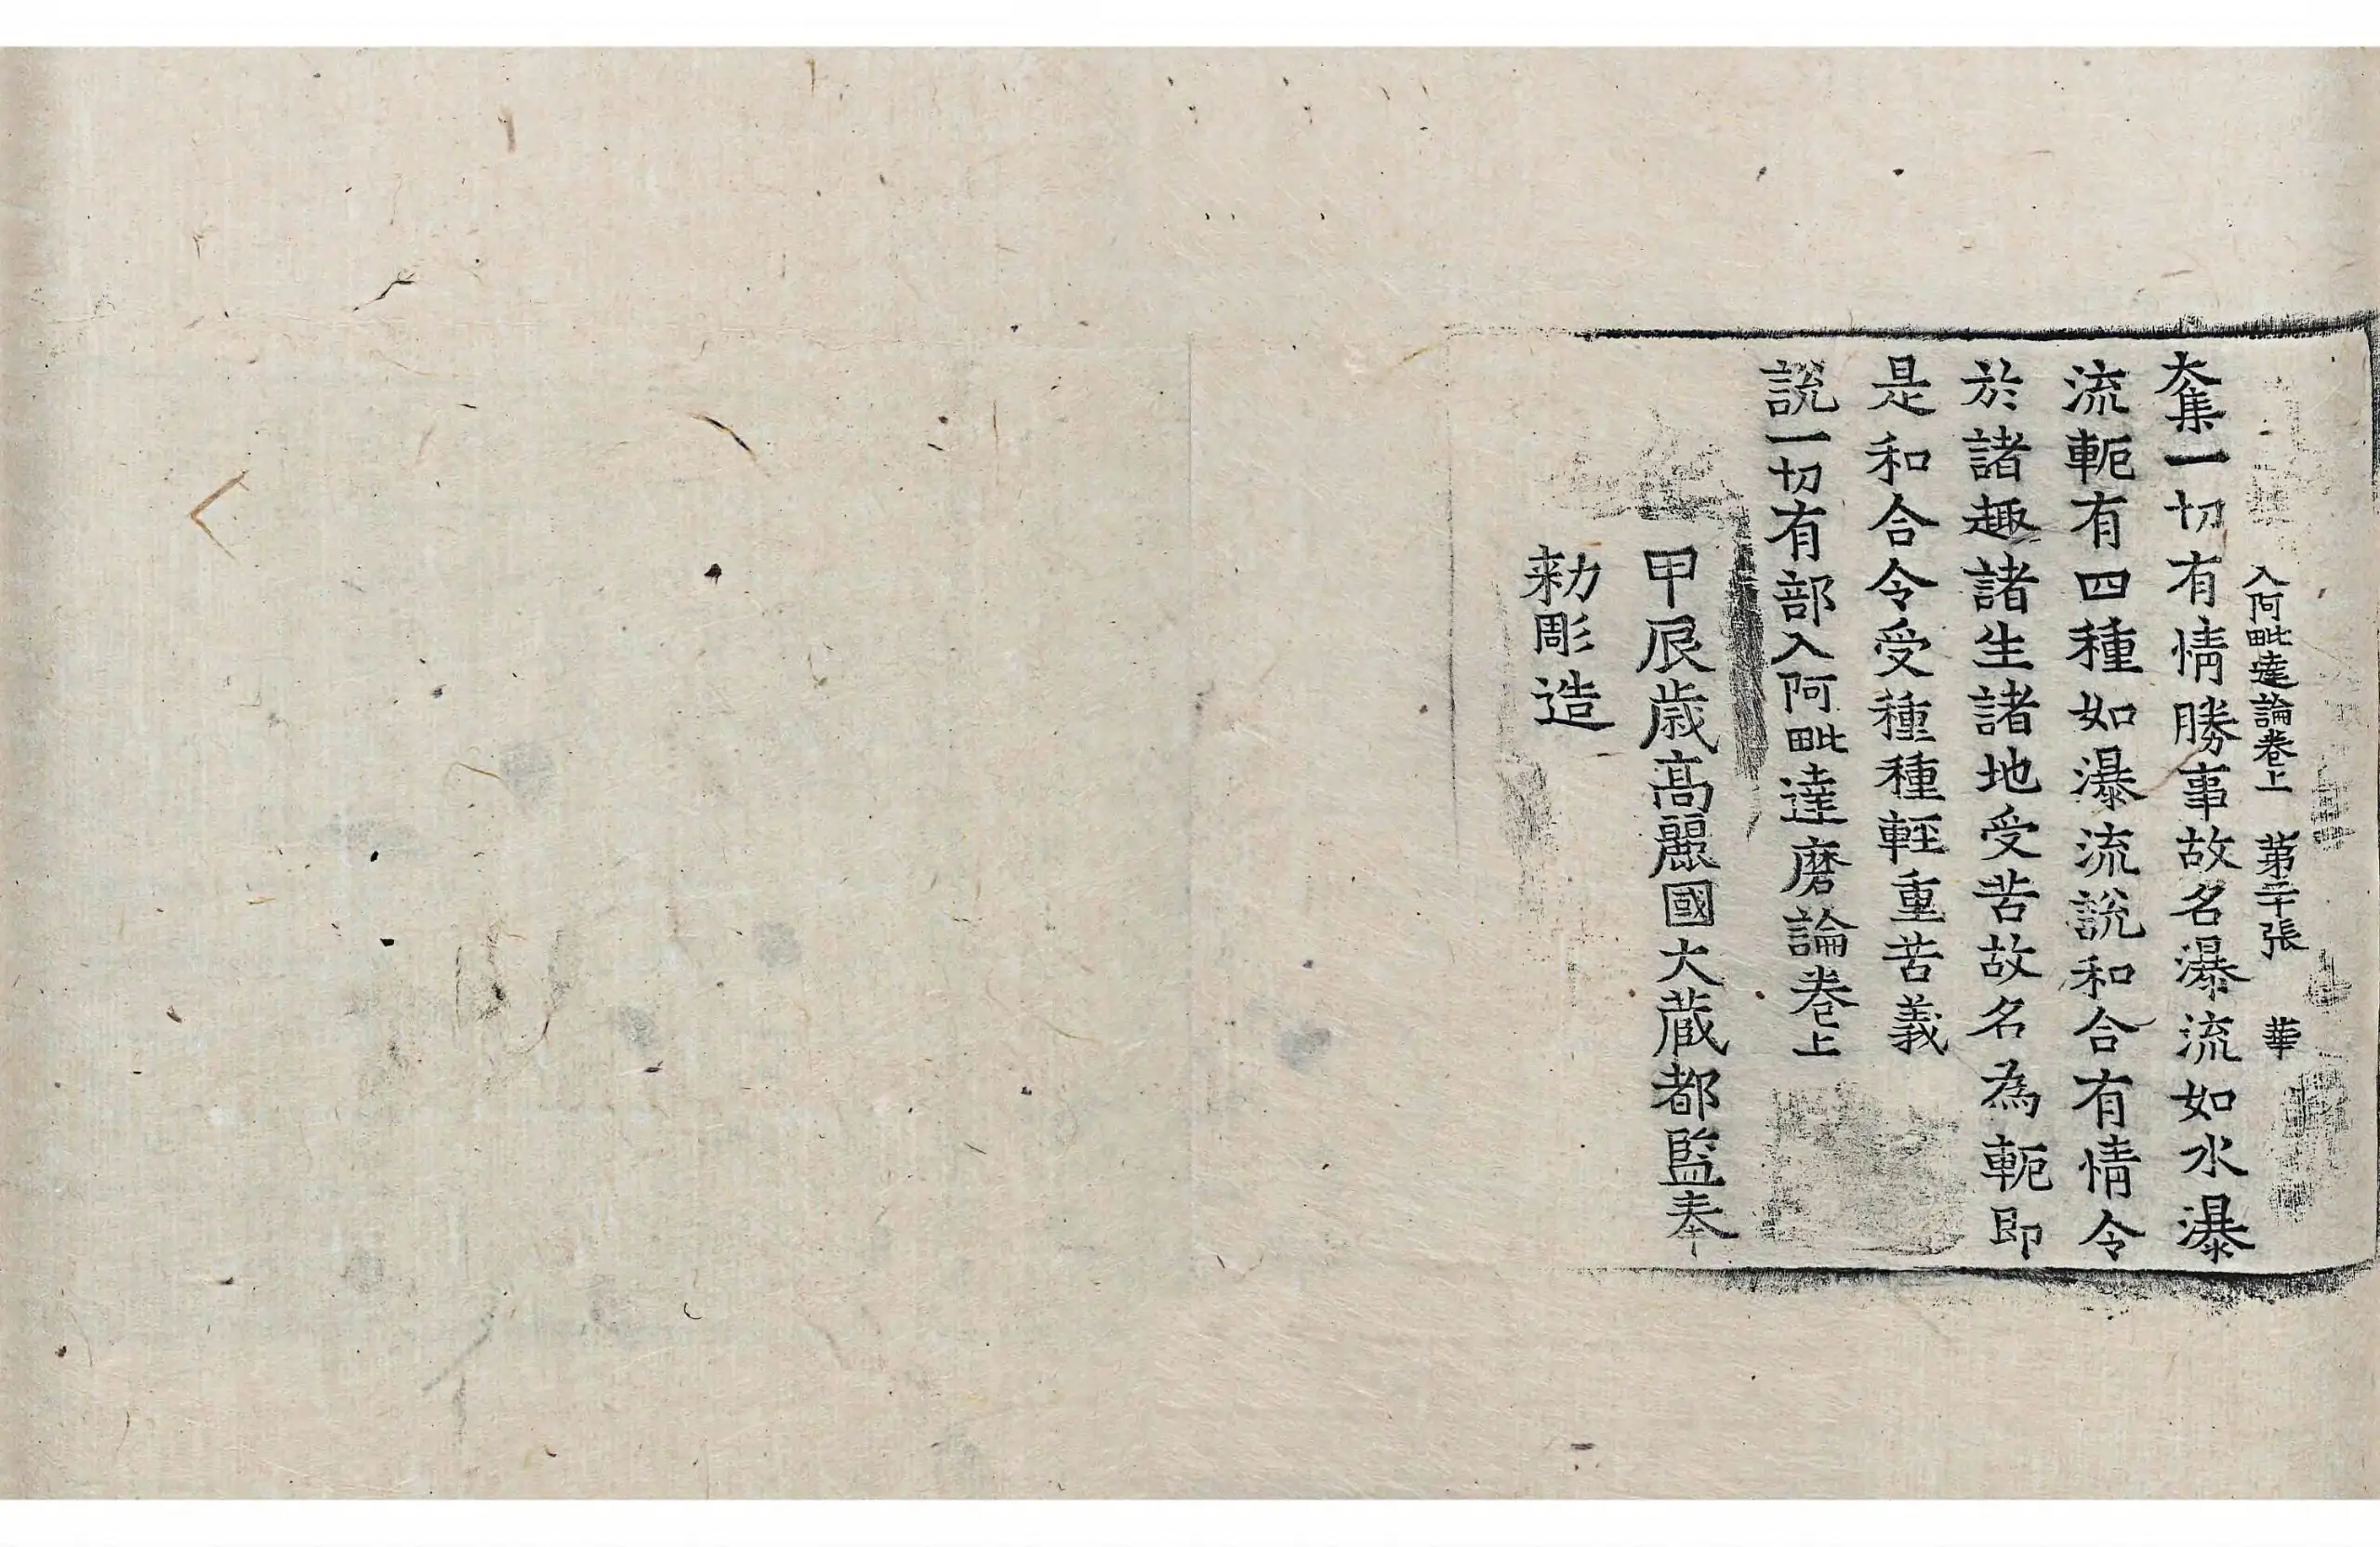 入阿毗達論卷上 第二十張 華
奪一切有情勝事故名瀑流如水瀑
流軛有四種如瀑流說和合有情令
於諸趣諸生諸地受苦故名為軛即
是和合令受種種輕重苦義
說一切有部入阿毗達磨論卷上
甲辰歲高麗國大藏都監奉
勑彫造